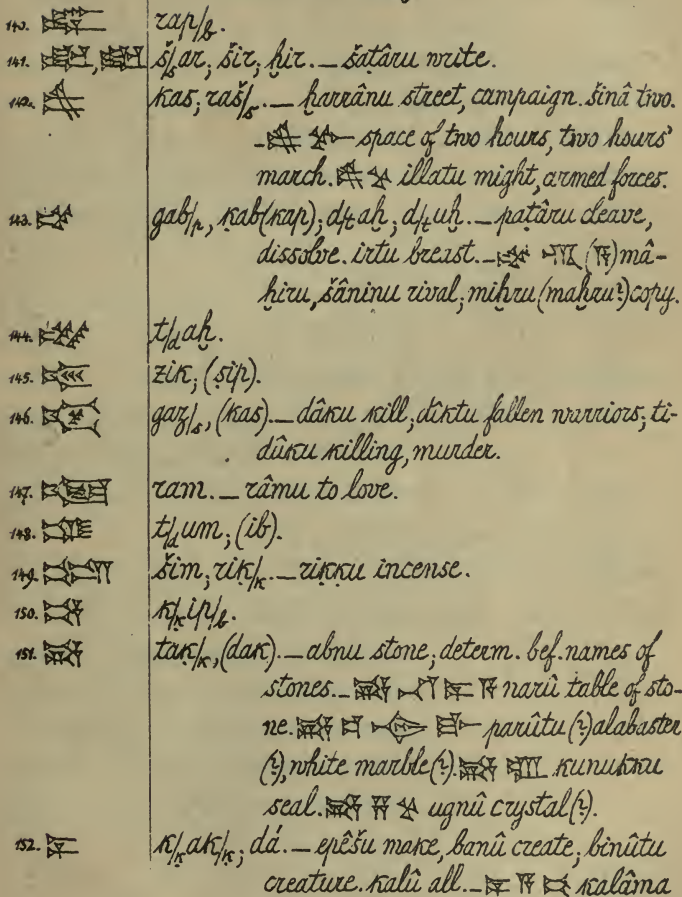 140. 𒊏 rap/b.
141. š/sar; šir; ḫir. — šaṭâru write.
142. kas; raš/s. — ḫarrânu street, campaign. šinâ two.
— space of two hours, two hours'
march. illatu might, armed forces.
143. gab/p, ḳab(ḳap); d/ṭaḫ; d/ṭuḫ. — paṭâru cleave,
dissolve. irtu breast. — mâ-
ḫiru, šâninu rival; miḫru (maḫru?) copy.
144. t/daḫ.
145. zik; (ṣip).
146. gaz/s, (kas). — dâku kill; dîktu fallen warriors; ti-
dûku killing, murder.
147. ram. — râmu to love.
148. t/dum; (ib).
149. šim; rik/ḳ. — riḳḳu incense.
150. k/ḳip/b.
151. tak/ḳ, (dak). — abnu stone; determ. bef. names of
stones. — narû table of sto-
ne. parûtu (?) alabaster
(?), white marble (?). kunukku
seal. ugnû crystal (?).
152. k/ḳak/ḳ; dá. — epêšu make, banû create; binûtu
creature. kalû all. — kalâma